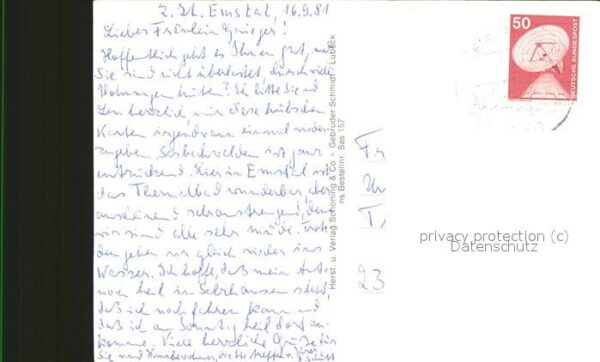 z. Zt. Emstal, 16.9.81
Liebes Fräulein
Hoffentlich geht es Ihnen gut, und
Sie sind nicht überlastet, durch viel
Wohnungen hüten? Ich bitte Sie und
herzlich, mir diese hübschen
Karten irgendwann einmal wieder
zugeben. Sasbachwalden ist ganz
entzückend. Hier in Emstal ist
das Thermalbad wunderbar, aber
anscheinend sehr anstrengend, denn
wir sind alle sehr müde. Trotz
dem gehen wir gleich wieder ins
Wasser. Ich hoffe, daß mein Auto
noch heil in steht,
daß ich noch fahren kann und
daß ich am Sonntag heil dort an
komme. Viele herzliche Grüße für
Sie und Hausbewohner, die Sie treffen.
Herst. u. Verlag Schöning & Co - Gebrüder Schmidt - Lübeck
ns Bestellnr. Sas 157
50
DEUTSCHE BUNDESPOST
Fr
T
23
privacy protection (c)
Datenschutz